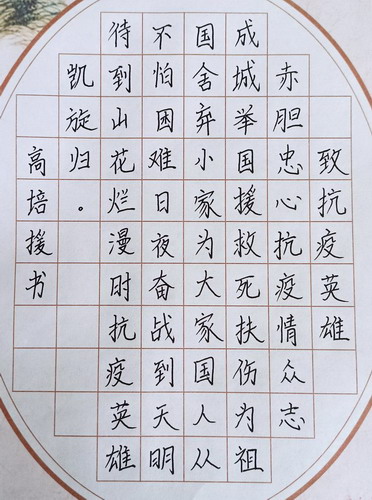 致抗疫英雄
赤胆忠心抗疫情众志
成城举国援救死扶伤为祖
国舍弃小家为大家国人从
不怕困难日夜奋战到天明
待到山花烂漫时抗疫英雄
凯旋归。
高培援书